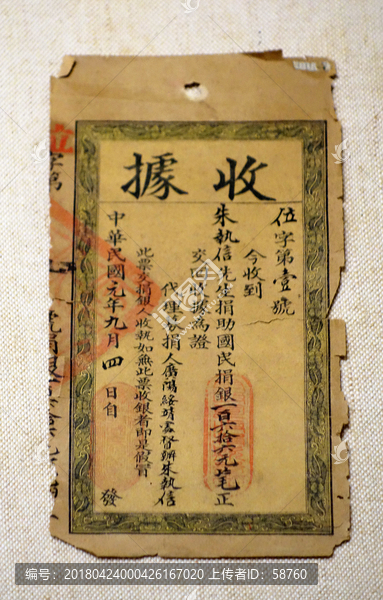 收據
位字第壹號
今收到
朱執信先生捐助國民捐銀一百六拾六元
交此收據為證
代理勸捐人廣陽綏靖處督辦朱執信
此票交捐銀人收執如無此票收銀者即是假冒
中華民國元年九月四日自
發
位字第
编号：20180424000426167020 上传者ID：58760